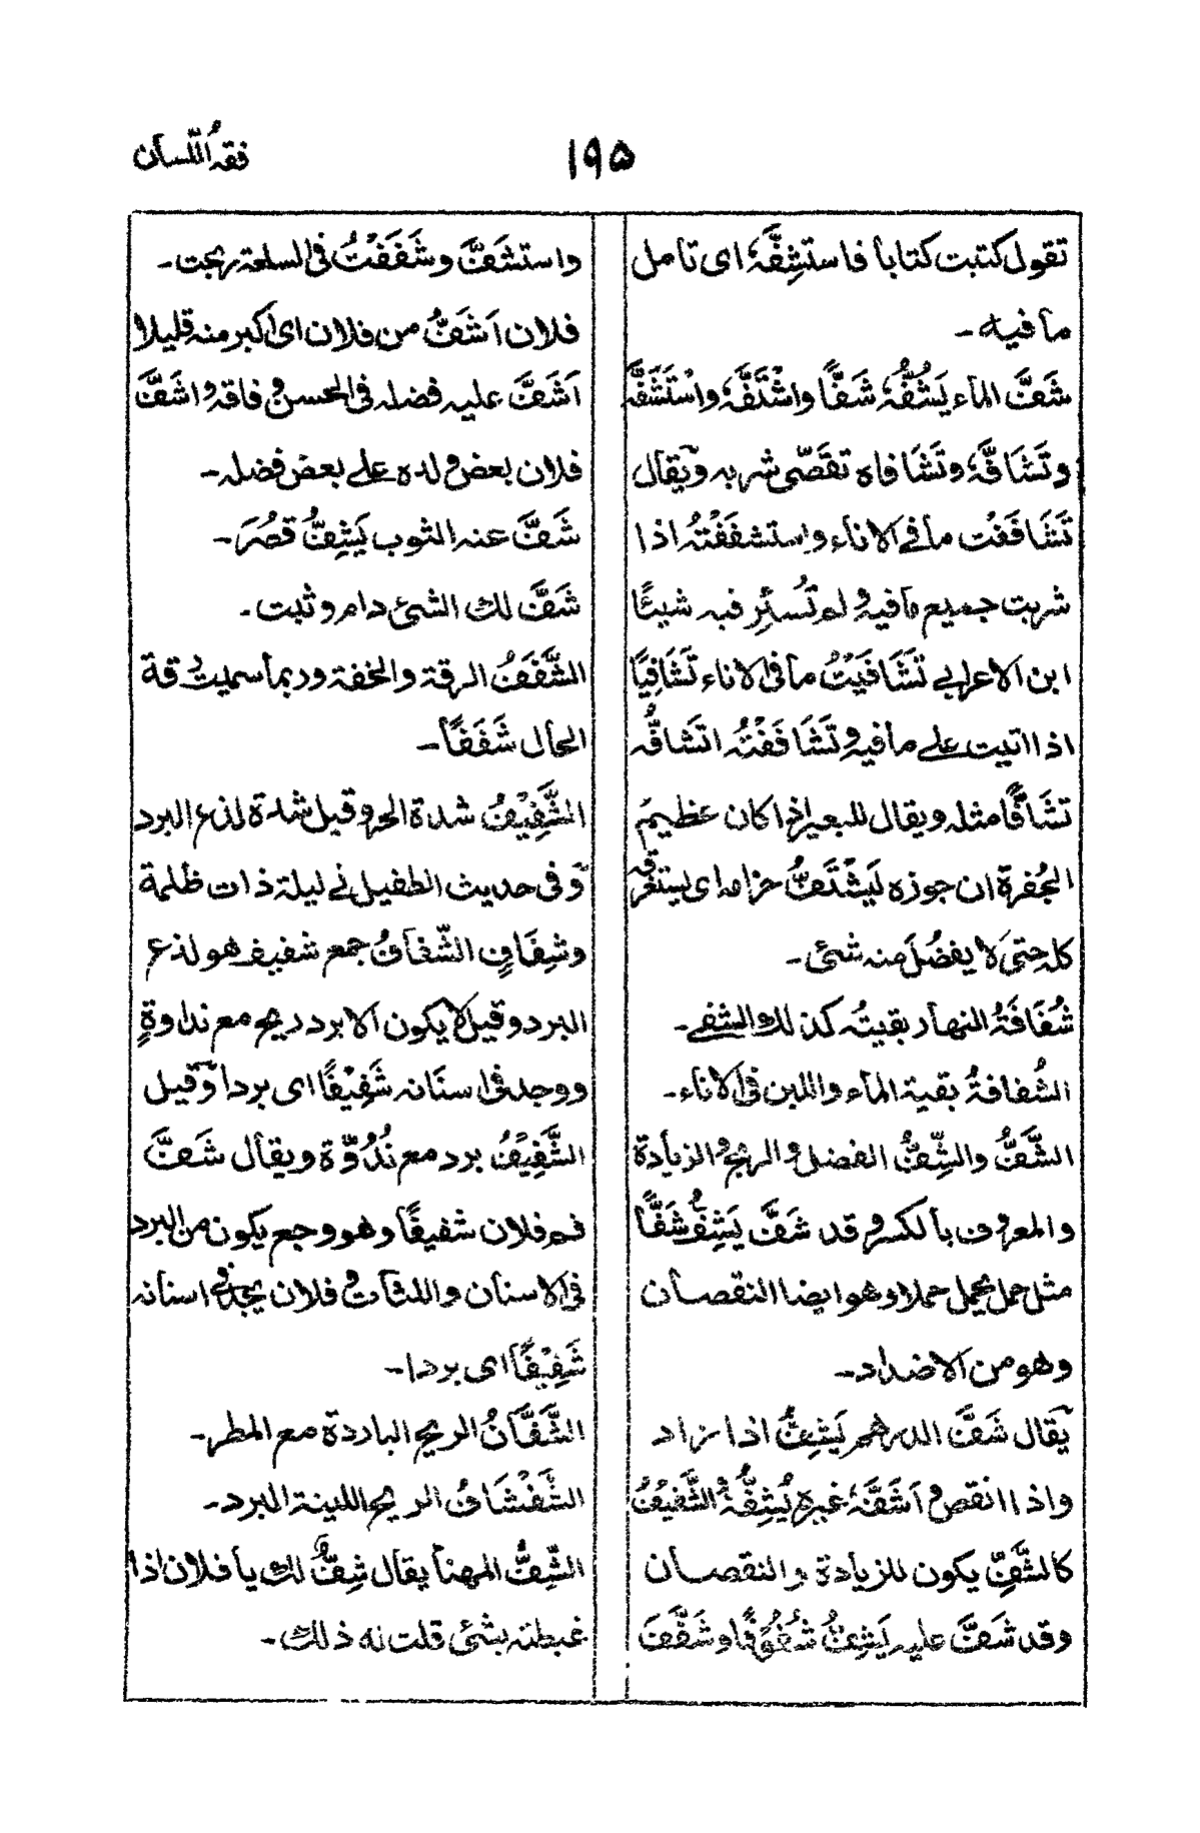 ۱۹۵
فقہُ اللّسان
تقول کتبت کتابا فاستشِفَّہٗ ای تامل
ما فیہ ۔
شَفَّ الماء یَشُفُّہٗ شَفًّا واشْتَفَّہٗ واسْتَشَفَّہٗ
وتَشَافَّہٗ وتَشَافاہ تقَصّی شربہ ویقال
تَشَافَفْت ما فی الاناء واستشفَفْتُہ اذا
شربت جمیع ما فیہ ولم تُسئِر فیہ شیئًا
ابن الاعرابی تَشَافَیْتُ ما فی الاناء تَشَافِیًا
اذا اتیت علی ما فیہ وتَشَافَفْتُہ اتَشافُّہ
تشَافًّا مثلہ ویقال للبعیر اذا کان عظیم
الجُفرة ان جوزہ لَیَشْتَفُّ حزامہ ای یستغرقہ
کلہ حتی لا یفضُلَ منہ شئ ۔
شُفَافَةُ النھار بقیتُہ کذلک الشفی ۔
الشُفافةُ بقیة الماء واللبن فی الاناء ۔
الشَّفُّ والشِّفُّ الفضل والربح والزیادة
والمعروف بالکسر وقد شَفَّ یَشِفُّ شَفًّا
مثل حمل یحمل حملا وھو ایضا النقصان
وھو من الاضداد ۔
یقال شَفَّ الدرھم یَشِفُّ اذا زاد
واذا انقص و اَشَفَّہٗ غیرہ یُشِفُّہٗ الشَّفِیْفُ
کالشَّفِّ یکون للزیادة والنقصان
وقد شَفَّ علیہ یَشِفُّ شُفُوْفًا وشَفَّفَ
واستشَفَّ وشَفَفْتُ فی السلعة ربحت ۔
فلان اَشَفُّ من فلان ای اکبر منہ قلیلا
اَشَفَّ علیہ فضلہ فی الحسن وفاقہ واشَفَّ
فلان بعض ولدہ علی بعض فضلہ ۔
شَفَّ عنہ الثوب یَشِفُّ قصُرَ ۔
شَفَّ لک الشئ دام وثبت ۔
الشَّفَفُ الرقة والخفة وربما سمیت رقة
الحال شَفَفًا ۔
الشَّفِیْفُ شدة الحر وقیل شدة لذع البرد
وفی حدیث الطفیل فی لیلة ذات ظلمة
وشِفَافٍ الشِّفافُ جمع شفیف ھو لذع
البرد وقیل لا یکون الا برد ریح مع نداوةٍ
ووجد فی اسنانہ شَفِیْفًا ای بردا وقیل
الشَّفِیْفُ برد مع نُدُوَّة ویقال شَفَّ
فم فلان شفیفًا وھو وجع یکون من البرد
فی الاسنان واللثات وفلان یجد فی اسنانہ
شَفِیْفًا ای بردا ۔
الشَّفَّانُ الریح الباردة مع المطر ۔
الشَّفْشَافُ الریح اللینة البرد ۔
الشِّفُّ المھنأ یقال شِفٌّ لک یا فلان اذا
غبطتہ بشئ قلت لہ ذلک ۔